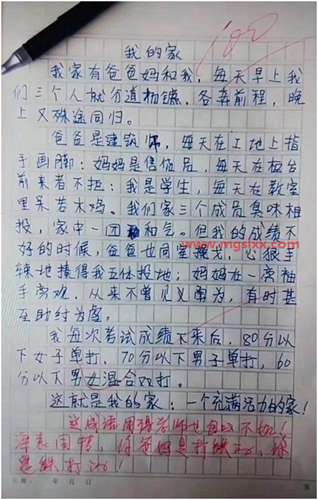 100
我的家
我家有爸爸妈和我，每天早上我
们三个人就分道扬镳，各奔前程，晚
上又殊途同归。
爸爸是建筑师，每天在工地上指
手画脚；妈妈是售货员，每天在柜台
前来者不拒；我是学生，每天在教室
里呆若木鸡。我们家三个成员臭味相
投，家中一团和气。但我的成绩不
www.mgsixx.com
好的时候，爸爸也同室操戈，心狠手
辣地揍得我五体投地；妈妈在一旁袖
手旁观，从来不曾见义勇为，有时甚
至助纣为虐。
我每次考试成绩下来后，80分以
下女子单打，70分以下男子单打，60
分以下男女混合双打。
这就是我的家：一个充满活力的家！
这成语用得老师也自以不如！
深表同情，你爸妈是打
打